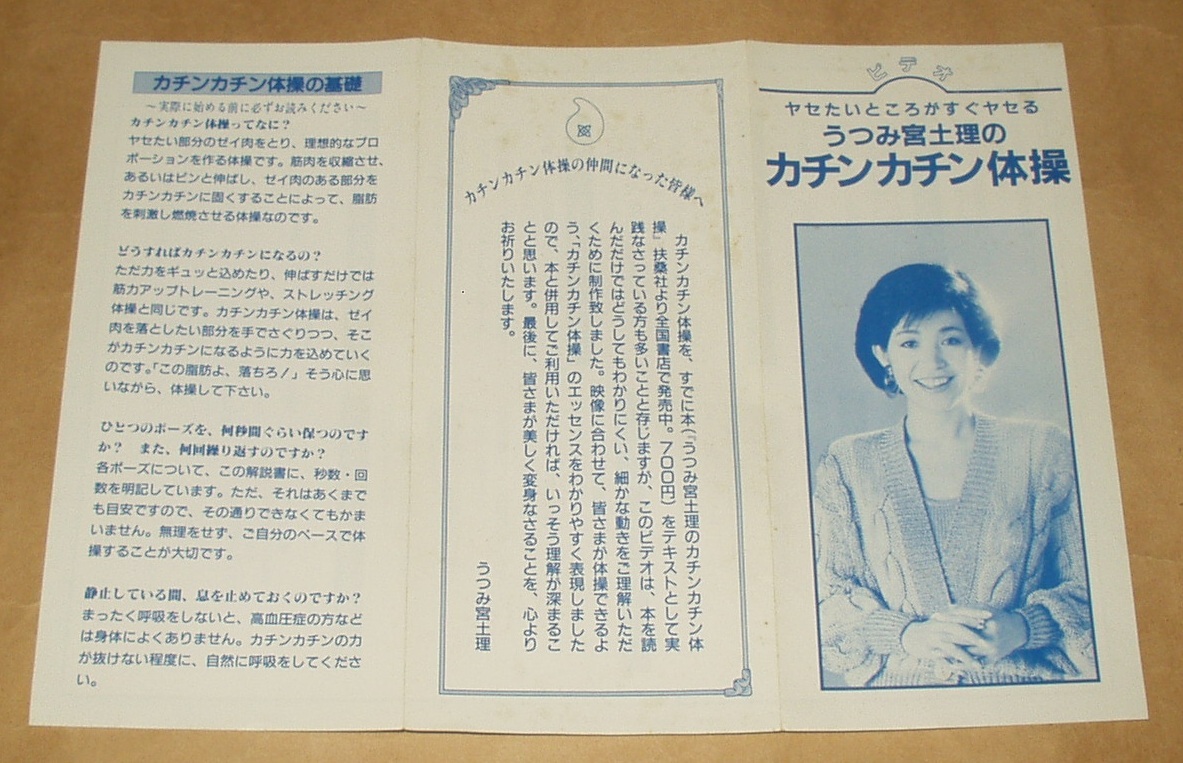 カチンカチン体操の基礎
～実際に始める前に必ずお読みください～
カチンカチン体操ってなに？
ヤセたい部分のゼイ肉をとり、理想的なプロ
ポーションを作る体操です。筋肉を収縮させ、
あるいはピンと伸ばし、ゼイ肉のある部分を
カチンカチンに固くすることによって、脂肪
を刺激し燃焼させる体操なのです。
どうすればカチンカチンになるの？
ただ力をギュッと込めたり、伸ばすだけでは
筋力アップトレーニングや、ストレッチング
体操と同じです。カチンカチン体操は、ゼイ
肉を落としたい部分を手でさぐりつつ、そこ
がカチンカチンになるように力を込めていく
のです。「この脂肪よ、落ちろ！」そう心に思
いながら、体操して下さい。
ひとつのポーズを、何秒間ぐらい保つのです
か？ また、何回繰り返すのですか？
各ポーズについて、この解説書に、秒数・回
数を明記しています。ただ、それはあくまで
も目安ですので、その通りできなくてもかま
いません。無理をせず、ご自分のペースで体
操することが大切です。
静止している間、息を止めておくのですか？
まったく呼吸をしないと、高血圧症の方など
は身体によくありません。カチンカチンの力
が抜けない程度に、自然に呼吸をしてくださ
い。
カチンカチン体操の仲間になった皆様へ
カチンカチン体操を、すでに本(『うつみ宮土理のカチンカチン体
操』扶桑社より全国書店で発売中。700円)をテキストとして実
践なさっている方も多いことと存じますが、このビデオは、本を読
んだだけではどうしてもわかりにくい、細かな動きをご理解いただ
くために制作致しました。映像に合わせて、皆さまが体操できるよ
う、「カチンカチン体操」のエッセンスをわかりやすく表現しました
ので、本と併用してご利用いただければ、いっそう理解が深まるこ
とと思います。最後に、皆さまが美しく変身なさることを、心より
お祈りいたします。
うつみ宮土理
ビデオ
ヤセたいところがすぐヤセる
うつみ宮土理の
カチンカチン体操